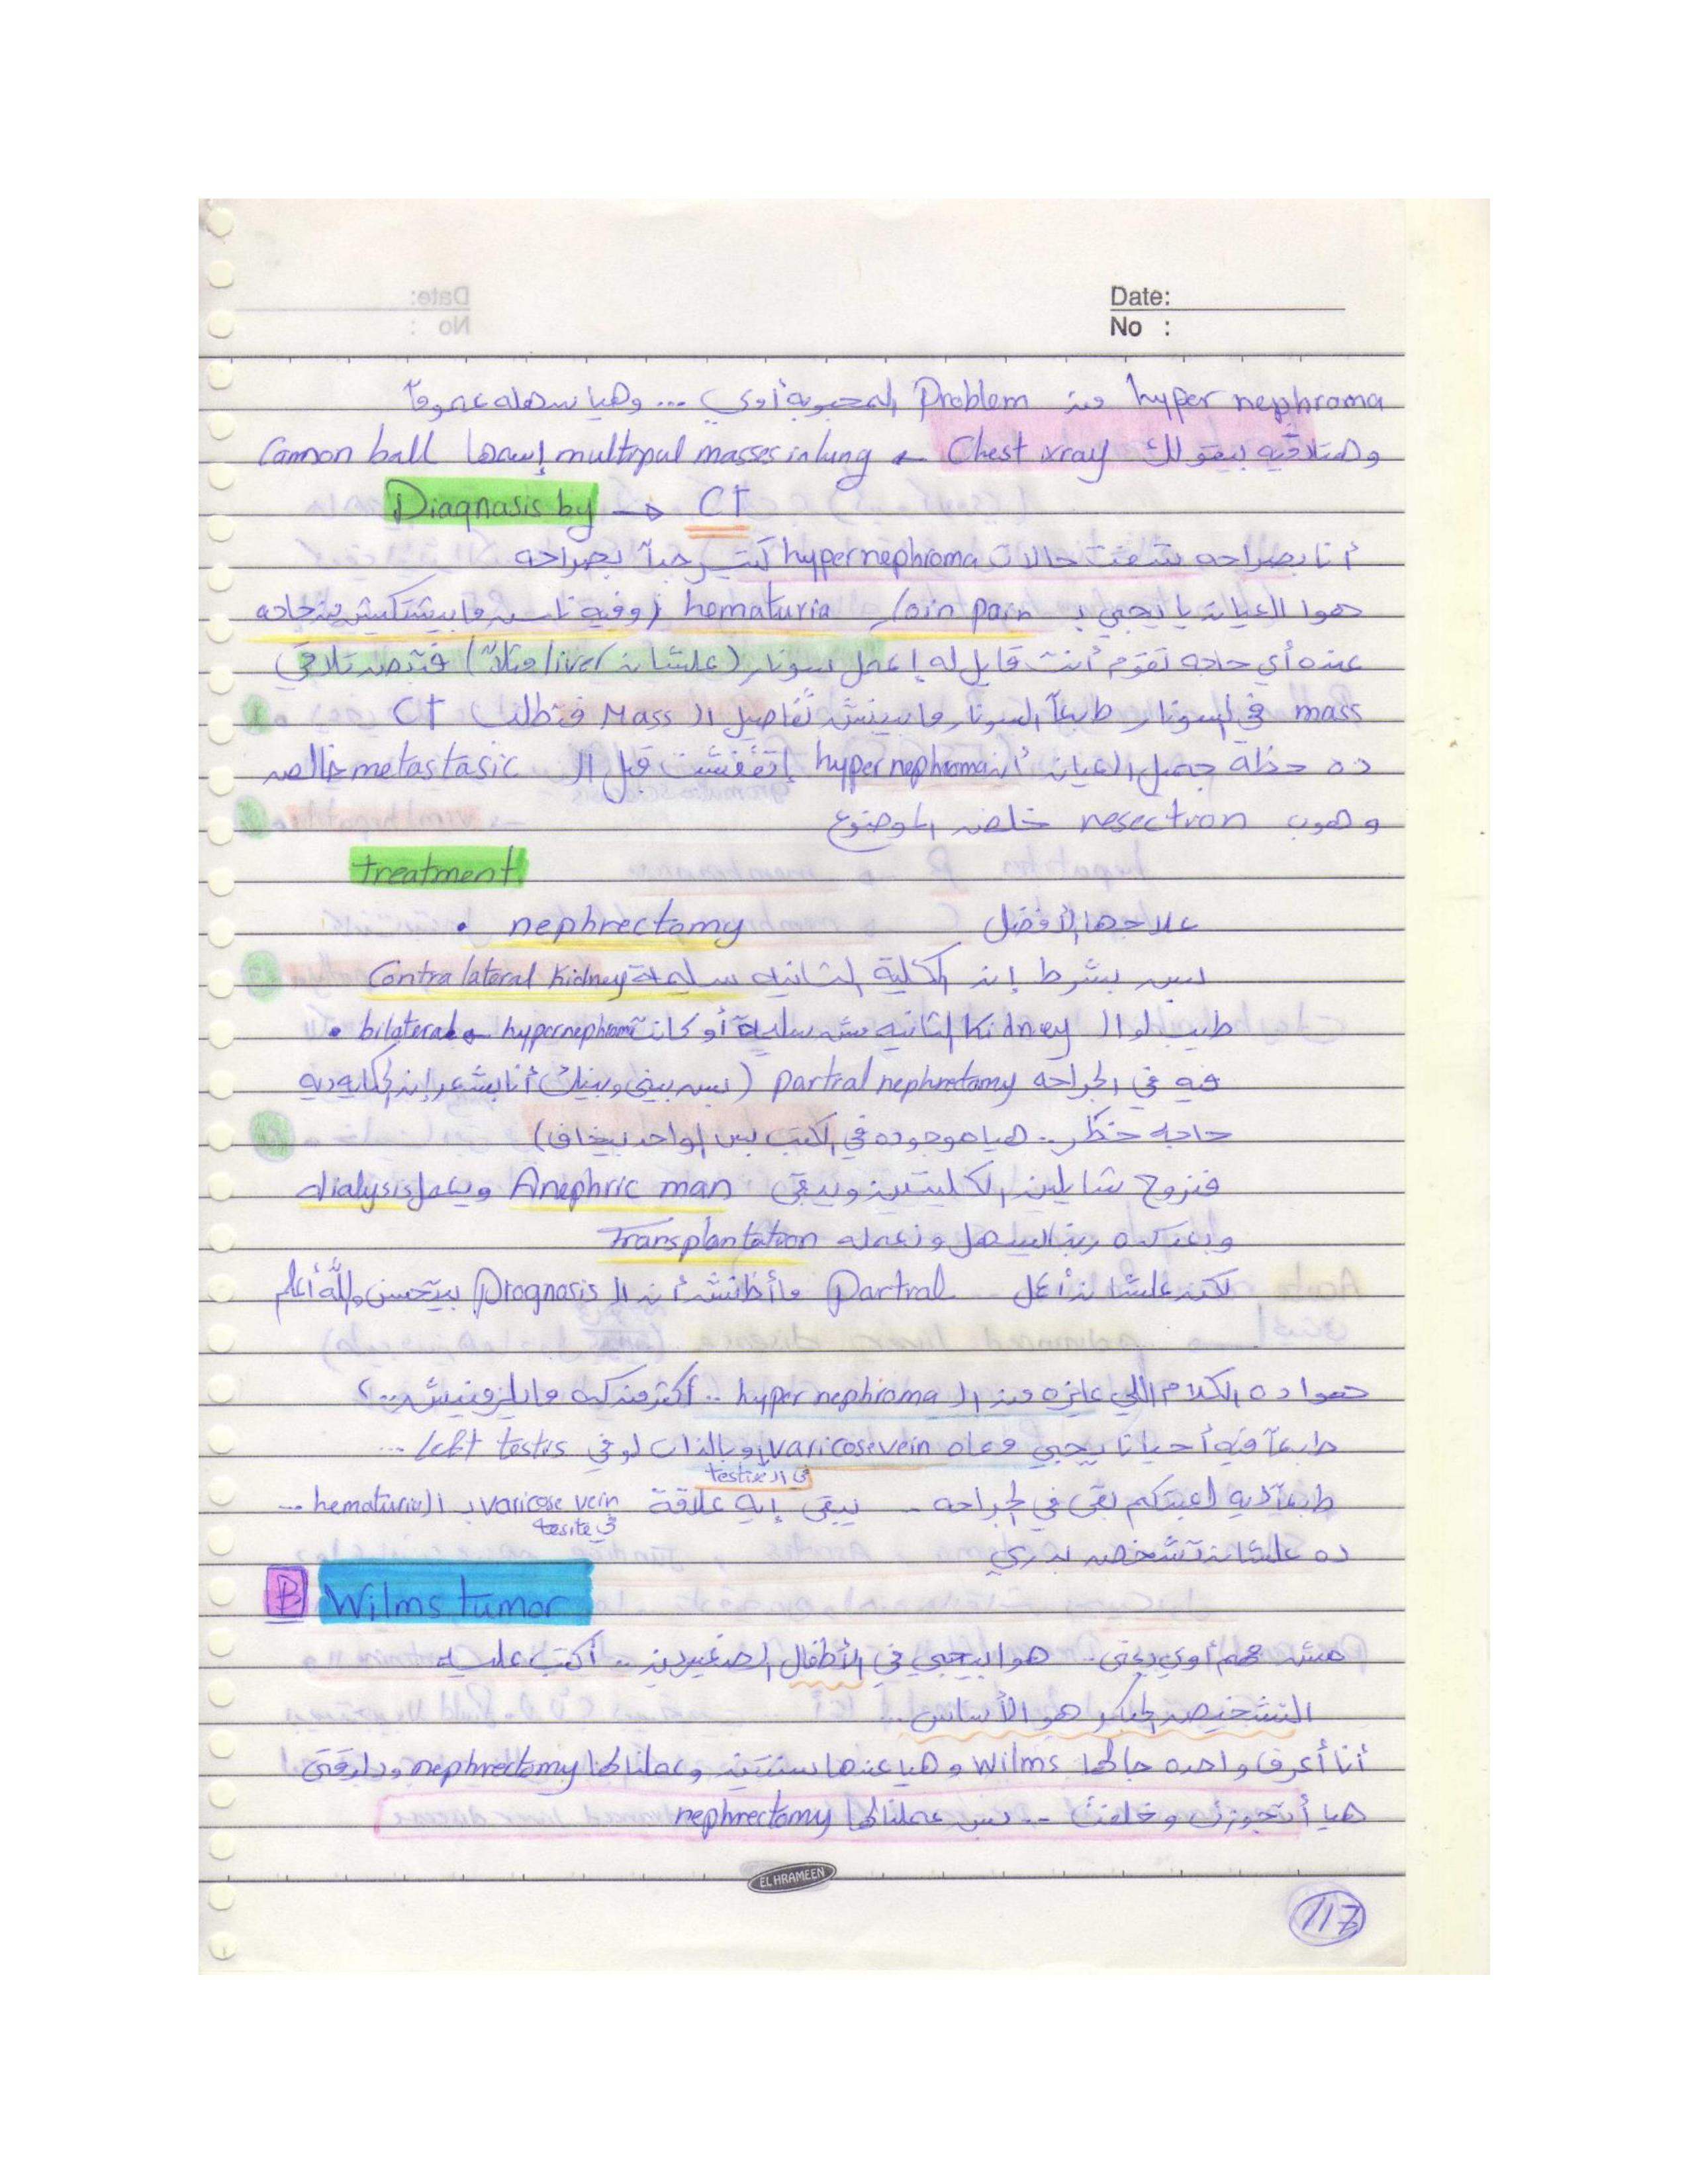 Date:
No :
hyper nephroma من Problem المحبوبه أوي ... وهيا سهله عموماً
وهتلاقيه بيقولك Chest xray ← multipul masses in lung إسمها Cannon ball
Diagnasis by → CT
أنا بصراحه شفت حالات hypernephroma كتير جداً بصراحه
هوا العيان يا يجي بـ loin pain, hematuria (وفيه ناس مابيشتكيش من حاجه
عنده أي حاجه تقوم أنت قايل له إعمل سونار (علشان liver مثلاً) فتبص تلاقي
mass في السونار طبعاً السونار مابيبينش تفاصيل الـ Mass فتطلب CT
ده حظه جميل العيان أن hypernephroma إتقفشت قبل الـ metastasic خالص
وهوب resection خلص الموضوع
treatment
علاجها الأفضل nephrectomy •
بس بشرط إن الكلية الثانيه سليمة Contra lateral Kidney
طيب لو الـ Kidney الثانيه مش سليمة أو كانت hypernephroma bilateral •
فيه في الجراحه partial nephrectomy (بس بيني وبينك أنا بشعر إن الحكايه ديه
حاجه خطر .. هيا موجوده في الكتب بس الواحد بيخاف)
فنروح شايلين الكليتين ويبقى Anephric man ويعمل dialysis
وبعد كده ربنا يسهل ونعمله Transplantation
لكن علشان أعمل Partial ماأظنش أن الـ Prognosis بيتحسن والله أعلم
هوا ده الكلام اللي عايزه من الـ hyper nephroma .. أكتر من كده مايلزمنيش..؟
طبعاً فيه أحيانا يجي معاه varicose vein وبالذات لو في left testis ...
في الـ testis
طبعاً ديه لعبتكم بقى في الجراحه .. يبقى إيه علاقة varicose vein بـ الـ hematuria ...
في tesite
ده علشان تشخص بدري
B Wilms tumor
مش مهم أوي يعني .. هوا بييجي في الأطفال الصغيرين .. أكتب عليه
التشخيص المبكر هو الأساس ..
أنا أعرف واحده جالها Wilms وهيا عندها سنتين وعملنالها nephrectomy ودلوقتي
هيا أتجوزت وخلفت .. بس عملنالها nephrectomy
EL HRAMEEN
117